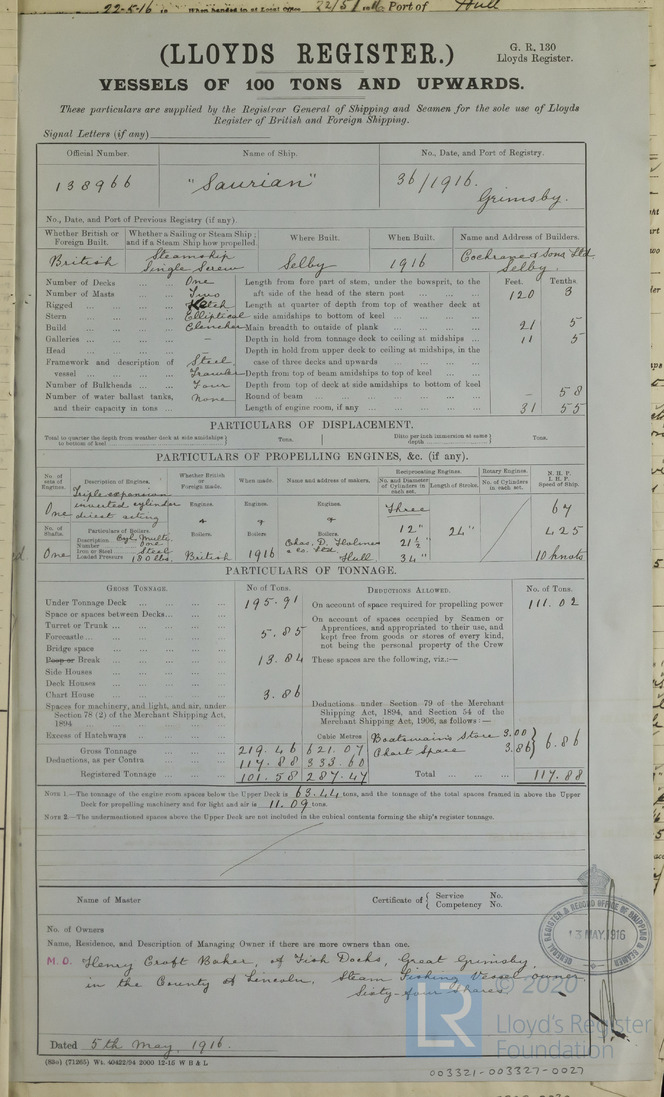 22-5-16 When handed in at Local Office 22/5/16 Port of Hull
(LLOYDS REGISTER.)
G. R. 130
Lloyds Register.
VESSELS OF 100 TONS AND UPWARDS.
These particulars are supplied by the Registrar General of Shipping and Seamen for the sole use of Lloyds
Register of British and Foreign Shipping.
Signal Letters (if any)
Official Number. Name of Ship. No., Date, and Port of Registry.
138966 "Saurian" 36/1916.
Grimsby.
No., Date, and Port of Previous Registry (if any).
Whether British or Foreign Built. Whether a Sailing or Steam Ship; and if a Steam Ship how propelled. Where Built. When Built. Name and Address of Builders.
British Steamship Single Screw Selby 1916 Cochrane & Sons Ltd Selby.
Feet. Tenths.
Number of Decks One Length from fore part of stem, under the bowsprit, to the
Number of Masts Two aft side of the head of the stern post 120 3
Rigged Ketch Length at quarter of depth from top of weather deck at
Stern Elliptical side amidships to bottom of keel
Build Clencher Main breadth to outside of plank 21 5
Galleries — Depth in hold from tonnage deck to ceiling at midships 11 5
Head — Depth in hold from upper deck to ceiling at midships, in the
Framework and description of Steel case of three decks and upwards
vessel Trawler Depth from top of beam amidships to top of keel
Number of Bulkheads Four Depth from top of deck at side amidships to bottom of keel
Number of water ballast tanks, None Round of beam - 58
and their capacity in tons Length of engine room, if any 31 55
PARTICULARS OF DISPLACEMENT.
Total to quarter the depth from weather deck at side amidships to bottom of keel Tons. Ditto per inch immersion at same depth Tons.
PARTICULARS OF PROPELLING ENGINES, &c. (if any).
No. of sets of Engines. Description of Engines. Whether British or Foreign made. When made. Name and address of makers. Reciprocating Engines. Rotary Engines. N. H. P. I. H. P. Speed of Ship.
No. and Diameter of Cylinders in each set. Length of Stroke. No. of Cylinders in each set.
One Triple expansion inverted cylinder direct acting Engines. Engines. Engines. Three 67
No. of Shafts. Particulars of Boilers. Boilers. Boilers. Boilers. 12" 24" 425
Description Cyl. Multr. Chas. D. Holmes 21½"
Number One & Co. Ltd.
Iron or Steel Steel
One Loaded Pressure 180 lbs. British 1916 Hull 34" 10 knots
PARTICULARS OF TONNAGE.
GROSS TONNAGE. No of Tons. DEDUCTIONS ALLOWED. No. of Tons.
Under Tonnage Deck 195.91 On account of space required for propelling power 111.02
Space or spaces between Decks On account of spaces occupied by Seamen or
Turret or Trunk Apprentices, and appropriated to their use, and
Forecastle 5.85 kept free from goods or stores of every kind,
Bridge space not being the personal property of the Crew
Poop or Break 13.84 These spaces are the following, viz.:—
Side Houses
Deck Houses
Chart House 3.86
Spaces for machinery, and light, and air, under Deductions under Section 79 of the Merchant
Section 78 (2) of the Merchant Shipping Act, Shipping Act, 1894, and Section 54 of the
1894 Merchant Shipping Act, 1906, as follows:—
Excess of Hatchways Cubic Metres Boatswain's Store 3.00
Gross Tonnage 219.46 621.07 Chart Space 3.86 } 6.86
Deductions, as per Contra 117.88 333.60
Registered Tonnage 101.58 287.47 Total 117.88
NOTE 1.—The tonnage of the engine room spaces below the Upper Deck is 63.44 tons, and the tonnage of the total spaces framed in above the Upper
Deck for propelling machinery and for light and air is 11.09 tons.
NOTE 2.—The undermentioned spaces above the Upper Deck are not included in the cubical contents forming the ship's register tonnage.
Name of Master Certificate of { Service No. Competency No.
No. of Owners
Name, Residence, and Description of Managing Owner if there are more owners than one.
M.O. Henry Croft Baker, of Fish Docks, Great Grimsby
in the County of Lincoln, Steam Fishing Vessel owner
Sixty-four Shares
REGISTER & RECORD OFFICE OF SHIPPING & SEAMEN
13 MAY 1916
© 2020
LR Lloyd's Register
Foundation
Dated 5th May, 1916.
(83o) (71265) Wt. 40422/94 2000 12-15 W B & L
003321-003327-0027